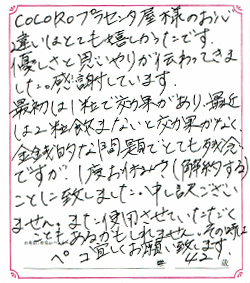 COCOROプラセンタ屋様のお心
遣いはとても嬉しかったです。
優しさと思いやりが伝わってきま
した。感謝しています。
最初は1粒で効果があり、最近
は2粒飲まないと効果がなく
金銭的な問題でとても残念
ですが、1度お休み(解約する)
ことに致しました。申し訳ござい
ません。また使用させていただく
こともあるかもしれません。その時は
宜しくお願い致します。
42 歳